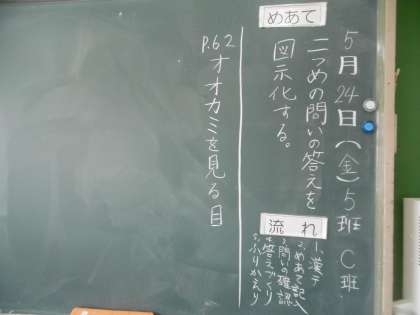 5月24日(金)5班 C班
めあて
二つめの問いの答えを
図示化する。
流れ
1、漢テ
2、めあて記入
3、問いの確認
4、答えづくり
5、ふりかえり
P.62
オオカミを見る目